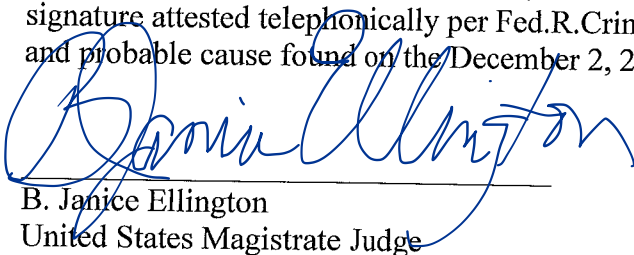 signature attested telephonically per Fed.R.Crim
and probable cause found on the December 2, 2
B Janice Ellington
B. Janice Ellington
United States Magistrate Judge